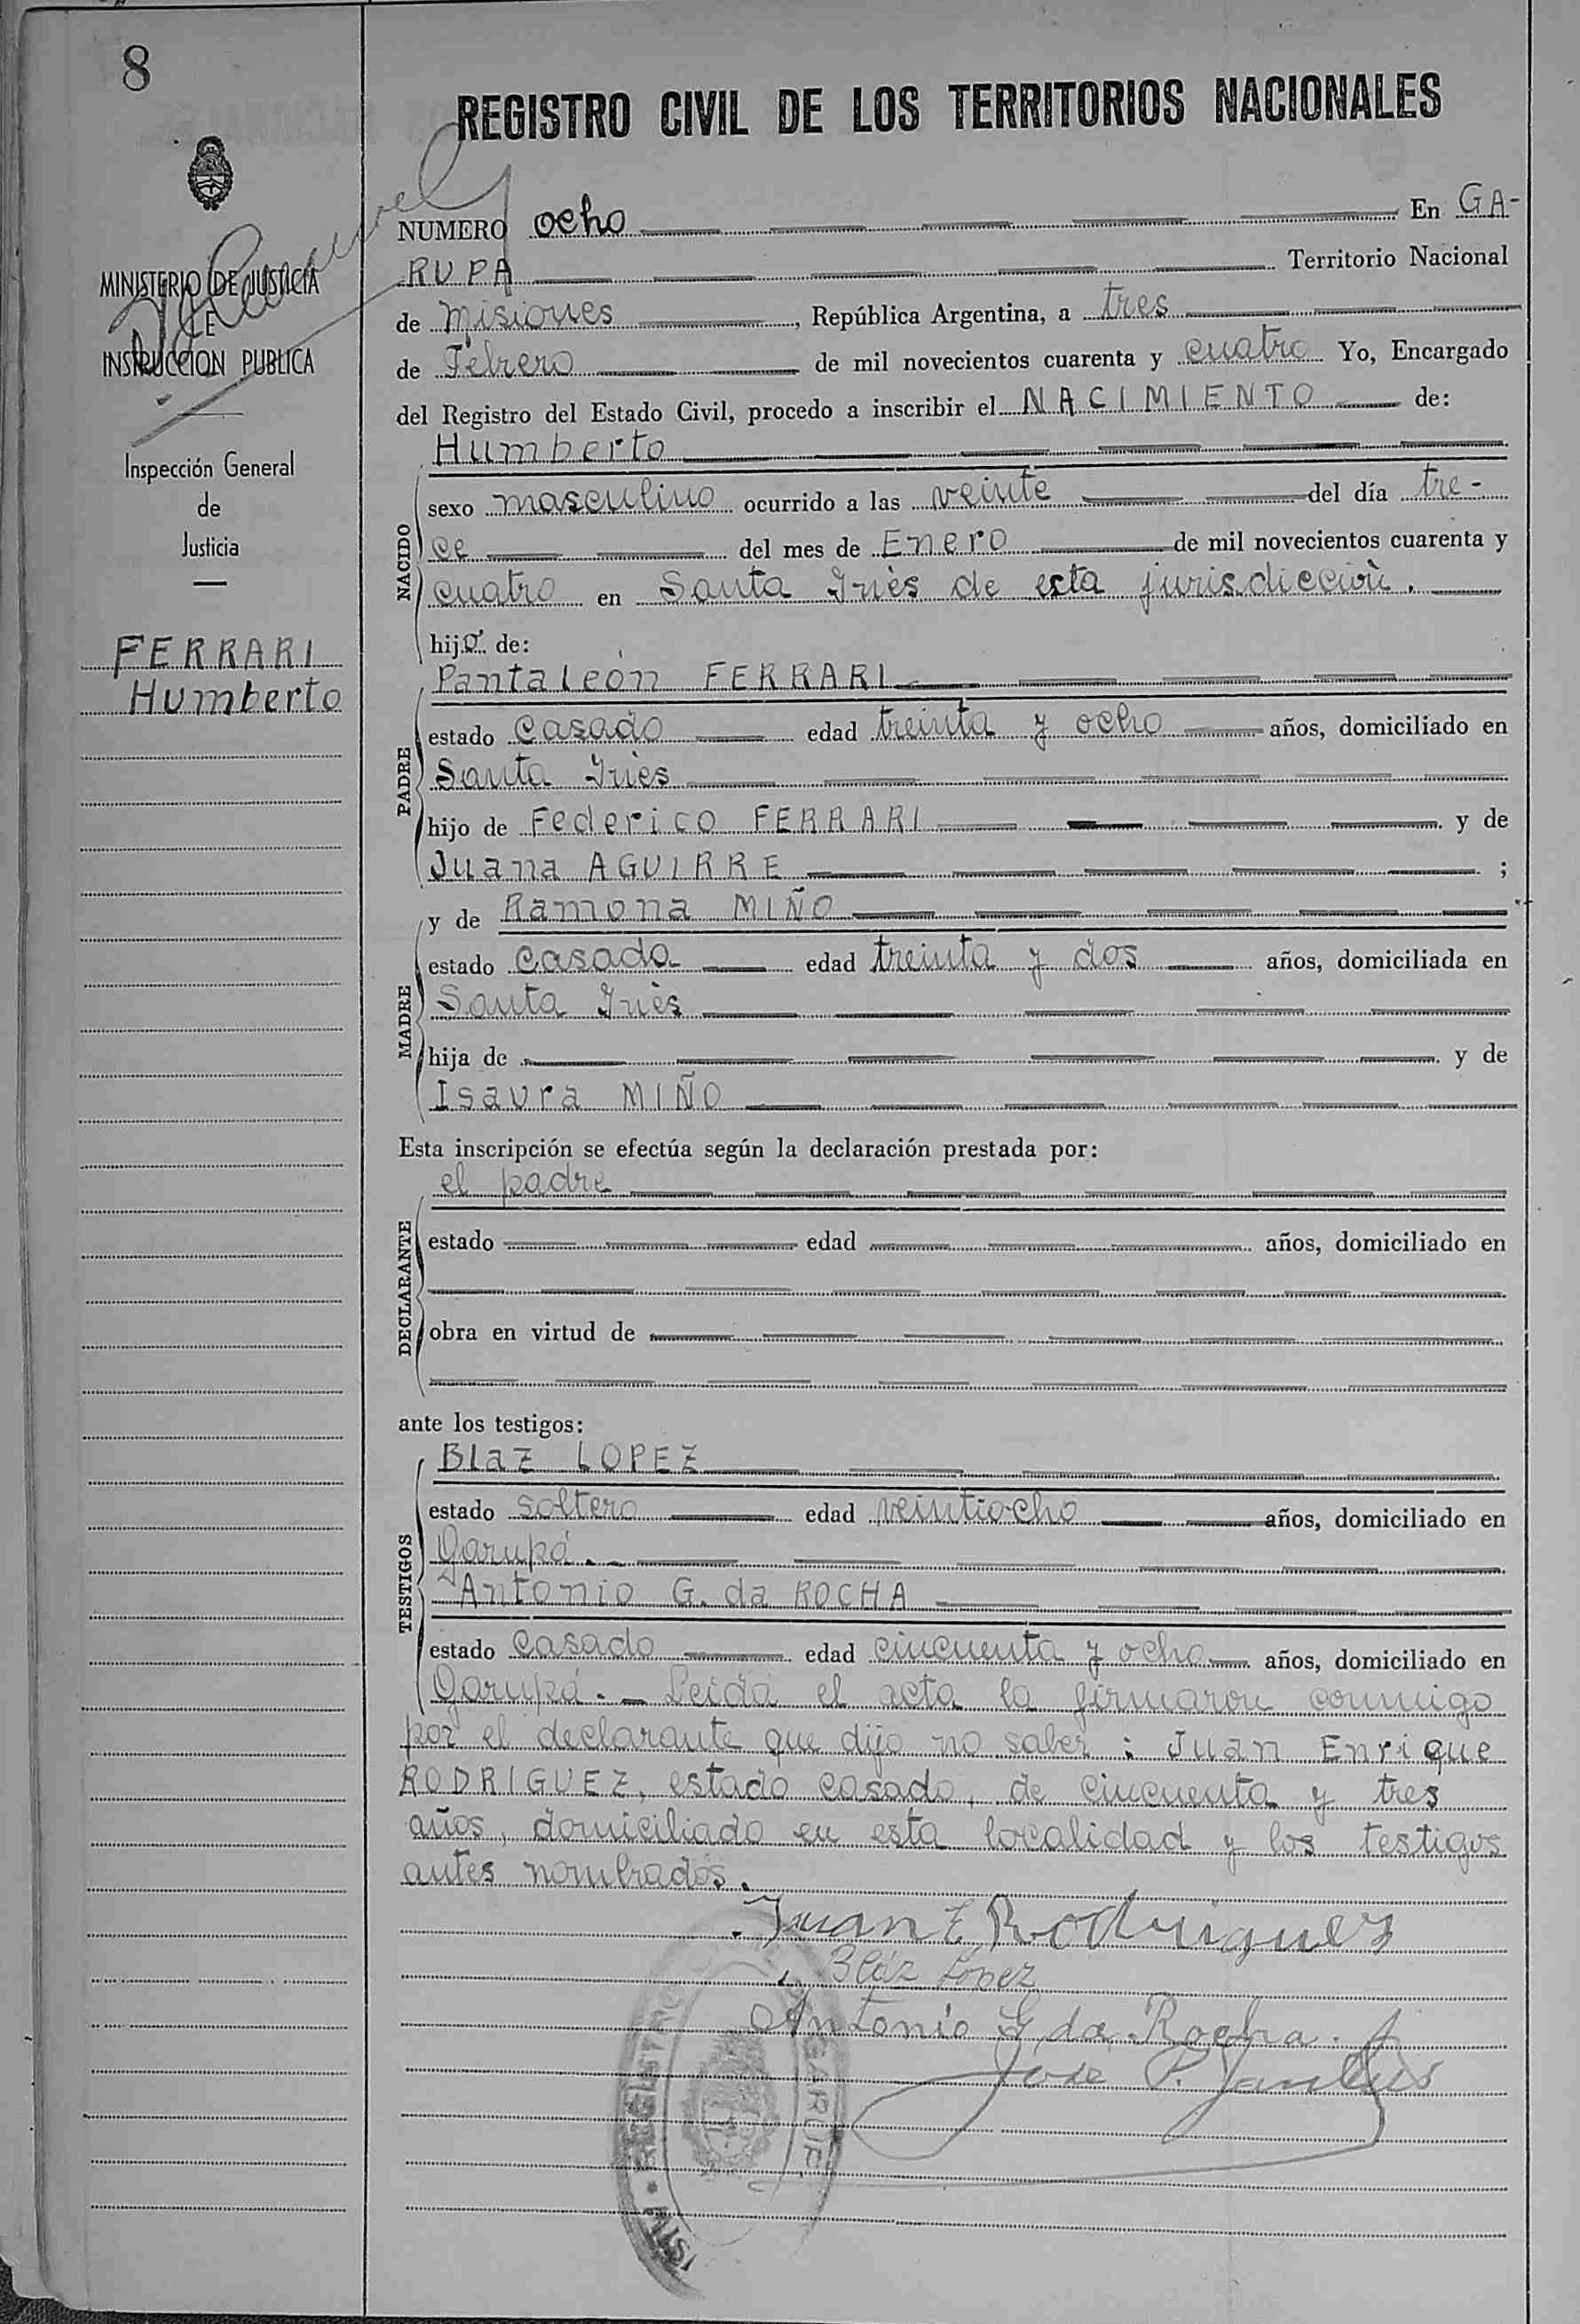 8
REGISTRO CIVIL DE LOS TERRITORIOS NACIONALES
NUMERO ocho En GA-
RUPA Territorio Nacional
de Misiones, República Argentina, a tres
de Febrero de mil novecientos cuarenta y cuatro Yo, Encargado
del Registro del Estado Civil, procedo a inscribir el NACIMIENTO de:
Humberto
MINISTERIO DE JUSTICIA
E
INSTRUCCION PUBLICA
Inspección General
de
Justicia
FERRARI
Humberto
NACIDO
sexo masculino ocurrido a las veinte del día tre-
ce del mes de Enero de mil novecientos cuarenta y
cuatro en Santa Inès de esta jurisdicciòn.
hijo de:
PADRE
Pantaleón FERRARI
estado casado edad treinta y ocho años, domiciliado en
Santa Inès
hijo de Federico FERRARI y de
Juana AGUIRRE ;
MADRE
y de Ramona MIÑO
estado casada edad treinta y dos años, domiciliada en
Santa Inès
hija de y de
Isaura MIÑO
Esta inscripción se efectúa según la declaración prestada por:
el padre
DECLARANTE
estado edad años, domiciliado en
obra en virtud de
ante los testigos:
TESTIGOS
Blaz LOPEZ
estado soltero edad veintiocho años, domiciliado en
Garupá.-
Antonio G. da ROCHA
estado casado edad cincuenta y ocho años, domiciliado en
Garupá.- Leida el acta la firmaron conmigo
por el declarante que dijo no saber: Juan Enrique
RODRIGUEZ, estado casado, de cincuenta y tres
años, domiciliado en esta localidad y los testigos
antes nombrados.
Juan E Rodriguez
Bláz López
Antonio G da Rocha.
José P.
REGISTRO
GARUP
MISI